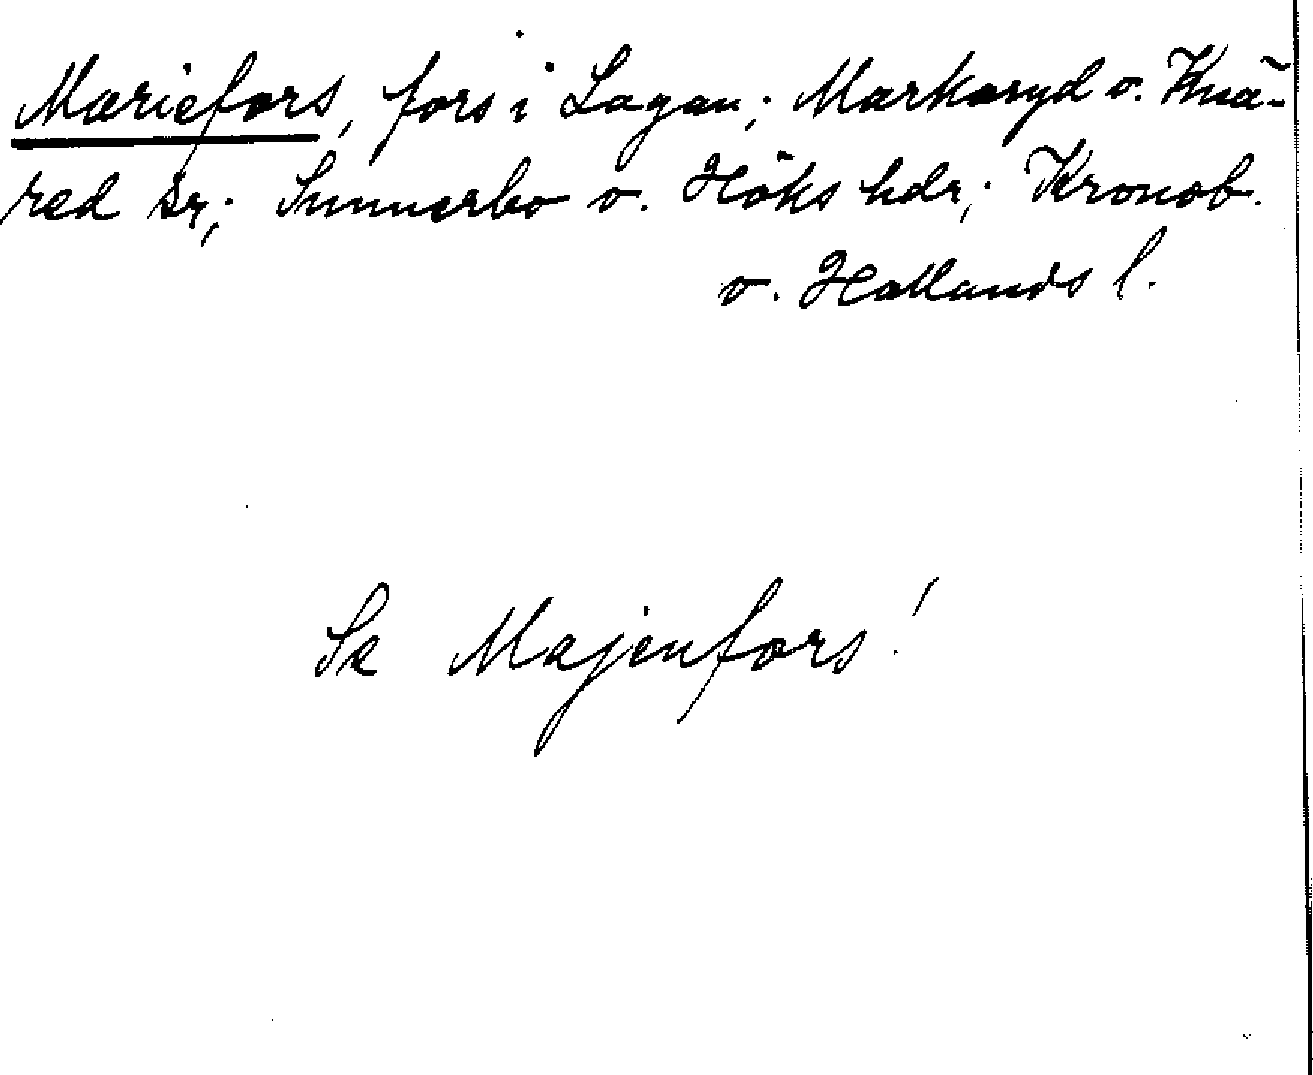 Mariefors, fors i Lagan; Markaryd o. Knä-
red snr; Sunnerbo o. Höks hdr; Kronob.
o. Hallands l.
Se Majenfors!